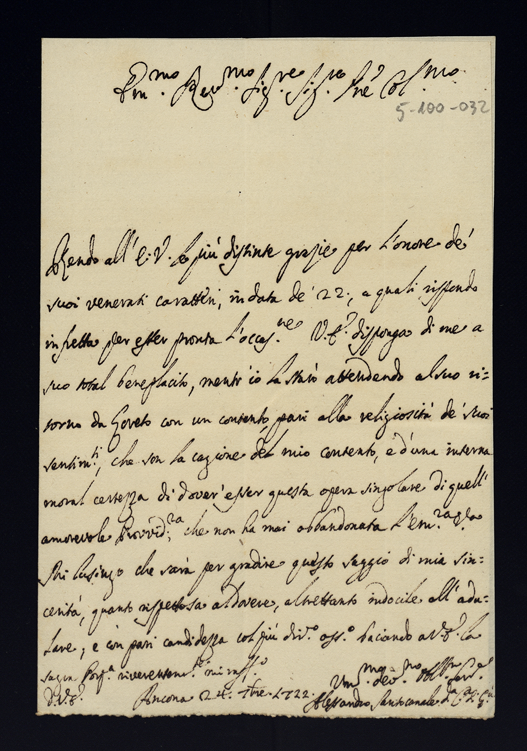 Em.mo Rev.mo Sig.re Sig.re P.ne Col.mo
5-100-032
Rendo all' E: V. le più distinte grazie per l'onore de'
suoi venerati caratteri, in data de' 22., a quali rispondo
in fretta per esser pronta l'occas.ne V. E. disponga di me a
suo total beneplacito, mentr'io la starò attendendo al suo ri=
torno da Loreto con un contento pari alla religiosità de' suoi
sentim.ti, che son la cagione del mio contento, e d'una interna
moral certezza di dover'esser questa opera singolare di quell'
amorevole Provvid.za, che non ha mai abbandonata l'Em.za V.ra
Mi lusingo che sarà per gradire questo saggio di mia sin=
cerità, quanto rispettosa al dovere, altrettanto indocile all'adu=
lare; e con pari candidezza col più div.o oss.o baciando a V. E. la
sagra Porp.a riverentem.te mi
Ancona 24. 1722.
Alessandro